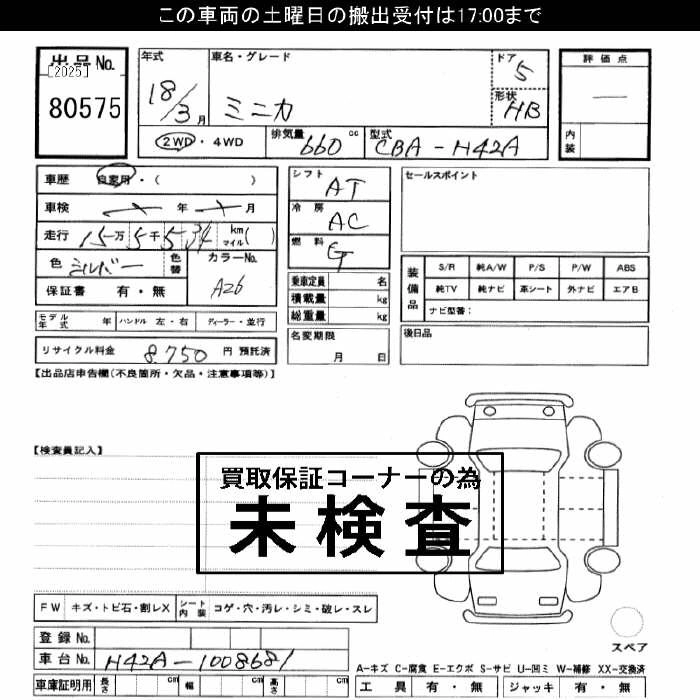 この車両の土曜日の搬出受付は17:00まで
出品No.
[2025]
80575
年式 18/3月
車名・グレード ミニカ
ドア 5
形状 HB
評価点
—
内装
2WD・4WD
排気量 660 cc
型式 CBA-H42A
車歴 自家用・( )
車検 年 月
走行 15万5千534 km マイル( )
色 シルバー 色替
カラーNo. A26
保証書 有・無
シフト AT
冷房 AC
燃料 G
乗車定員 名
積載量 kg
総重量 kg
セールスポイント
装備品
S/R 純A/W P/S P/W ABS
純TV 純ナビ 革シート 外ナビ エアB
ナビ型番:
モデル年式 年 ハンドル 左・右 ディーラー・並行
名変期限 月 日
後日品
リサイクル料金 8,750 円 預託済
【出品店申告欄(不良箇所・欠品・注意事項等)】
【検査員記入】
買取保証コーナーの為
未検査
FW キズ・トビ石・割レX
シート内装 コゲ・穴・汚レ・シミ・破レ・スレ
スペア
登録No.
車台No. H42A-1008681
A-キズ C-腐食 E-エクボ S-サビ U-凹ミ W-補修 XX-交換済
車庫証明用 長さ cm 幅 cm 高さ cm
工具 有・無 ジャッキ 有・無